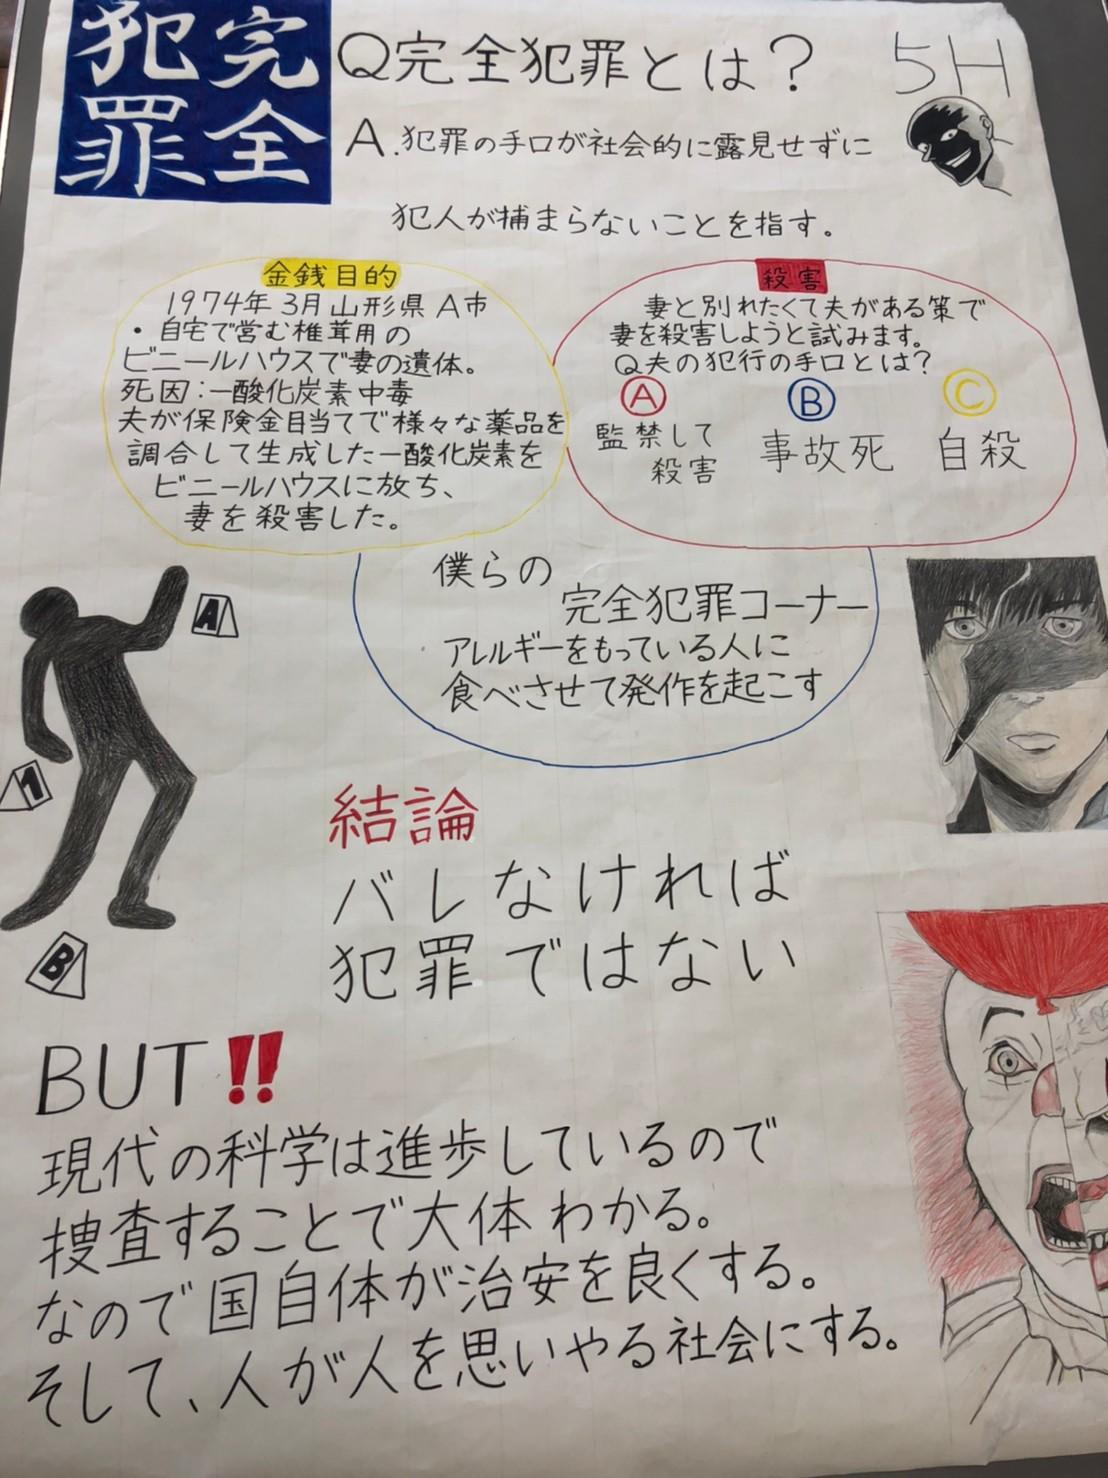 完全
犯罪
Q完全犯罪とは？
5H
A.犯罪の手口が社会的に露見せずに
犯人が捕まらないことを指す。
金銭目的
1974年3月山形県A市
・自宅で営む椎茸用の
ビニールハウスで妻の遺体。
死因：一酸化炭素中毒
夫が保険金目当てで様々な薬品を
調合して生成した一酸化炭素を
ビニールハウスに放ち、
妻を殺害した。
殺害
妻と別れたくて夫がある策で
妻を殺害しようと試みます。
Q夫の犯行の手口とは？
Ⓐ Ⓑ Ⓒ
監禁して
殺害
事故死
自殺
僕らの
完全犯罪コーナー
アレルギーをもっている人に
食べさせて発作を起こす
A
1
B
結論
バレなければ
犯罪ではない
BUT!!
現代の科学は進歩しているので
捜査することで大体わかる。
なので国自体が治安を良くする。
そして、人が人を思いやる社会にする。